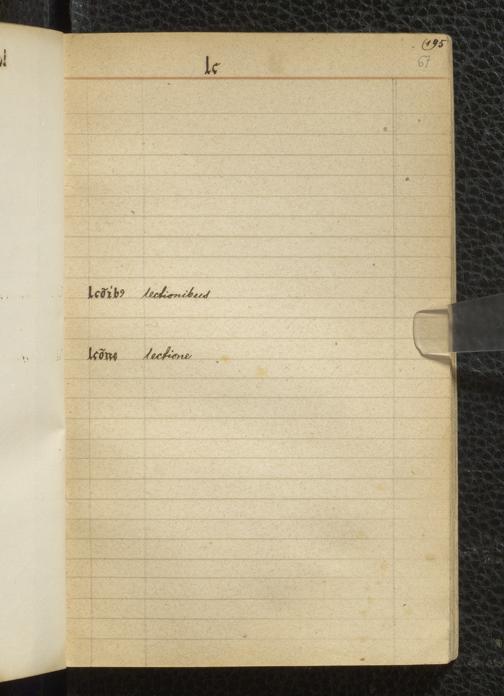 195
67
lc
lcõibꝰ lectionibus
lcõne lectione